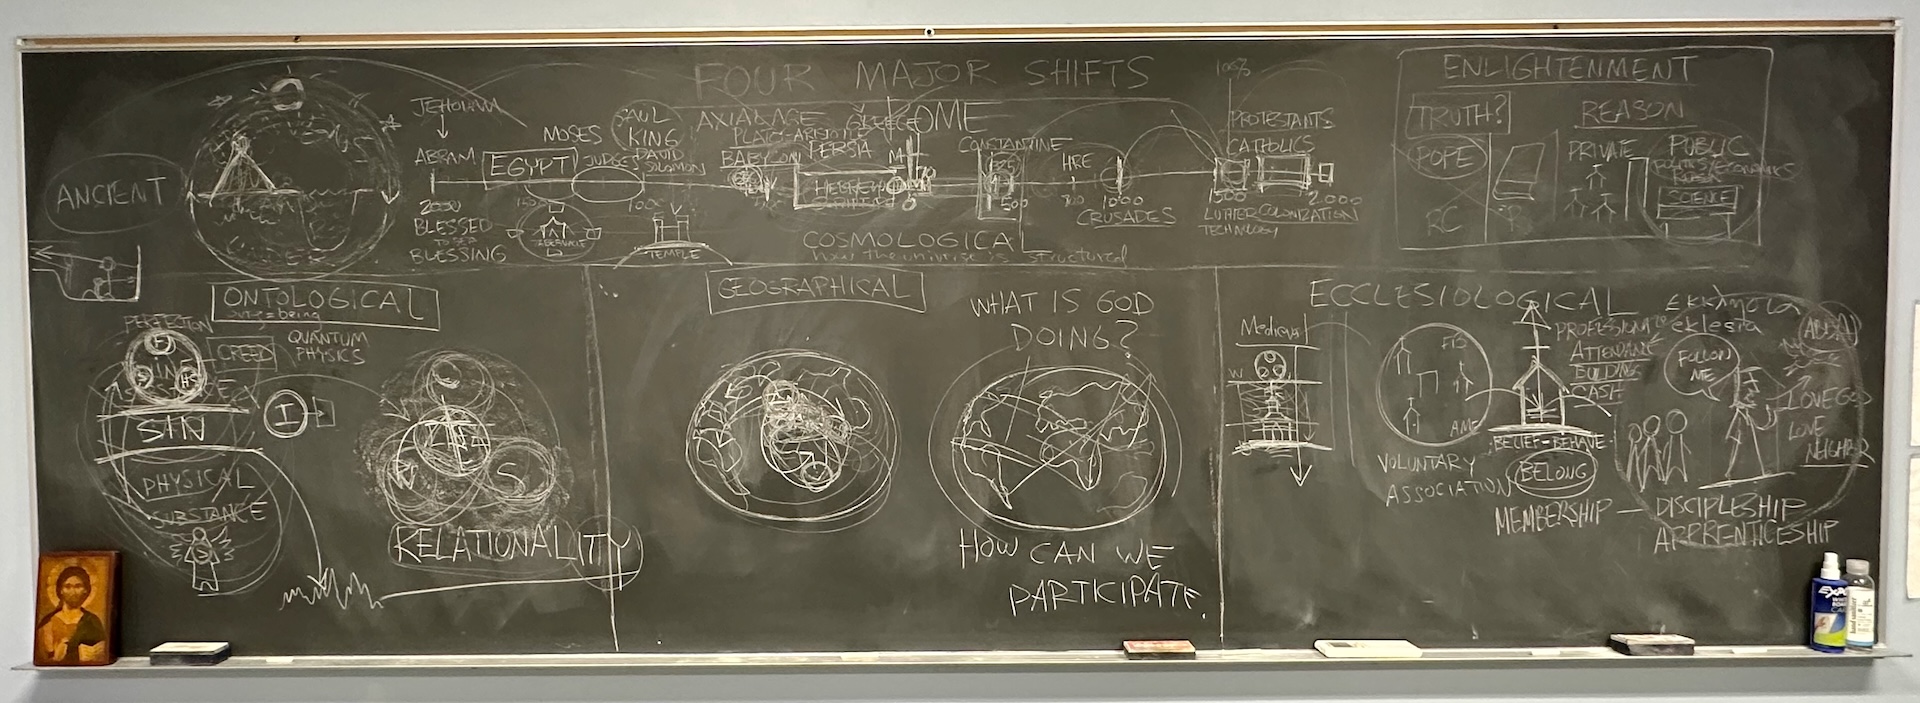 FOUR MAJOR SHIFTS
ANCIENT
JEHOVAH
ABRAM
2000
BLESSED
TO BE
BLESSING
MOSES
EGYPT
1500
TABERNACLE
JUDGES
SAUL
KING
DAVID
SOLOMON
1000
TEMPLE
AXIAL AGE
PLATO-ARISTOTLE
BABYLON
PERSIA
GREECE
ROME
HEBREW
0
CONSTANTINE
325
500
HRE
800
1000
CRUSADES
100%
PROTESTANTS
CATHOLICS
1500
2000
LUTHER COLONIZATION
TECHNOLOGY
COSMOLOGICAL
how the universe is structured
ENLIGHTENMENT
TRUTH?
REASON
POPE
PRIVATE
PUBLIC
POLITICS/ECONOMICS
SCIENCE
RC
P
ONTOLOGICAL
ontos=being
PERFECTION
F
S
H
CREED
QUANTUM
PHYSICS
SIN
I
PHYSICAL
SUBSTANCE
S
S
RELATIONALITY
GEOGRAPHICAL
WHAT IS GOD
DOING?
HOW CAN WE
PARTICIPATE.
ECCLESIOLOGICAL
Medieval
W
VOLUNTARY
ASSOCIATION
PROFESSIONAL
ATTENDANCE
BUILDING
CASH
BELIEF-BEHAVE
BELONG
MEMBERSHIP — DISCIPLESHIP
APPRENTICESHIP
eklesia
ABBA
FOLLOW
ME
LOVE GOD
LOVE
NEIGHBOR
EXPO